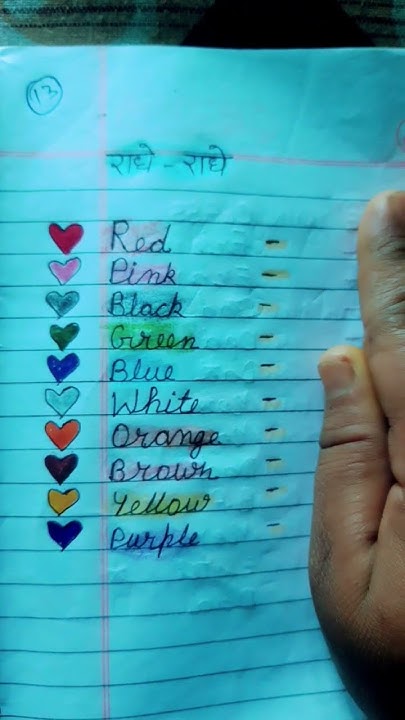 13
राधे - राधे
Red -
Pink -
Black -
Green -
Blue -
White -
Orange -
Brown -
Yellow -
Purple -